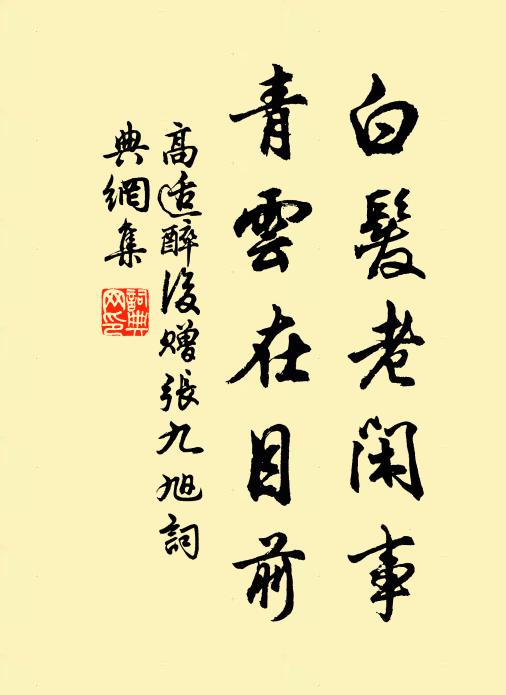 白髮老閑事
青雲在目前
高适醉後贈張九旭詞
典網集
詞典
网印